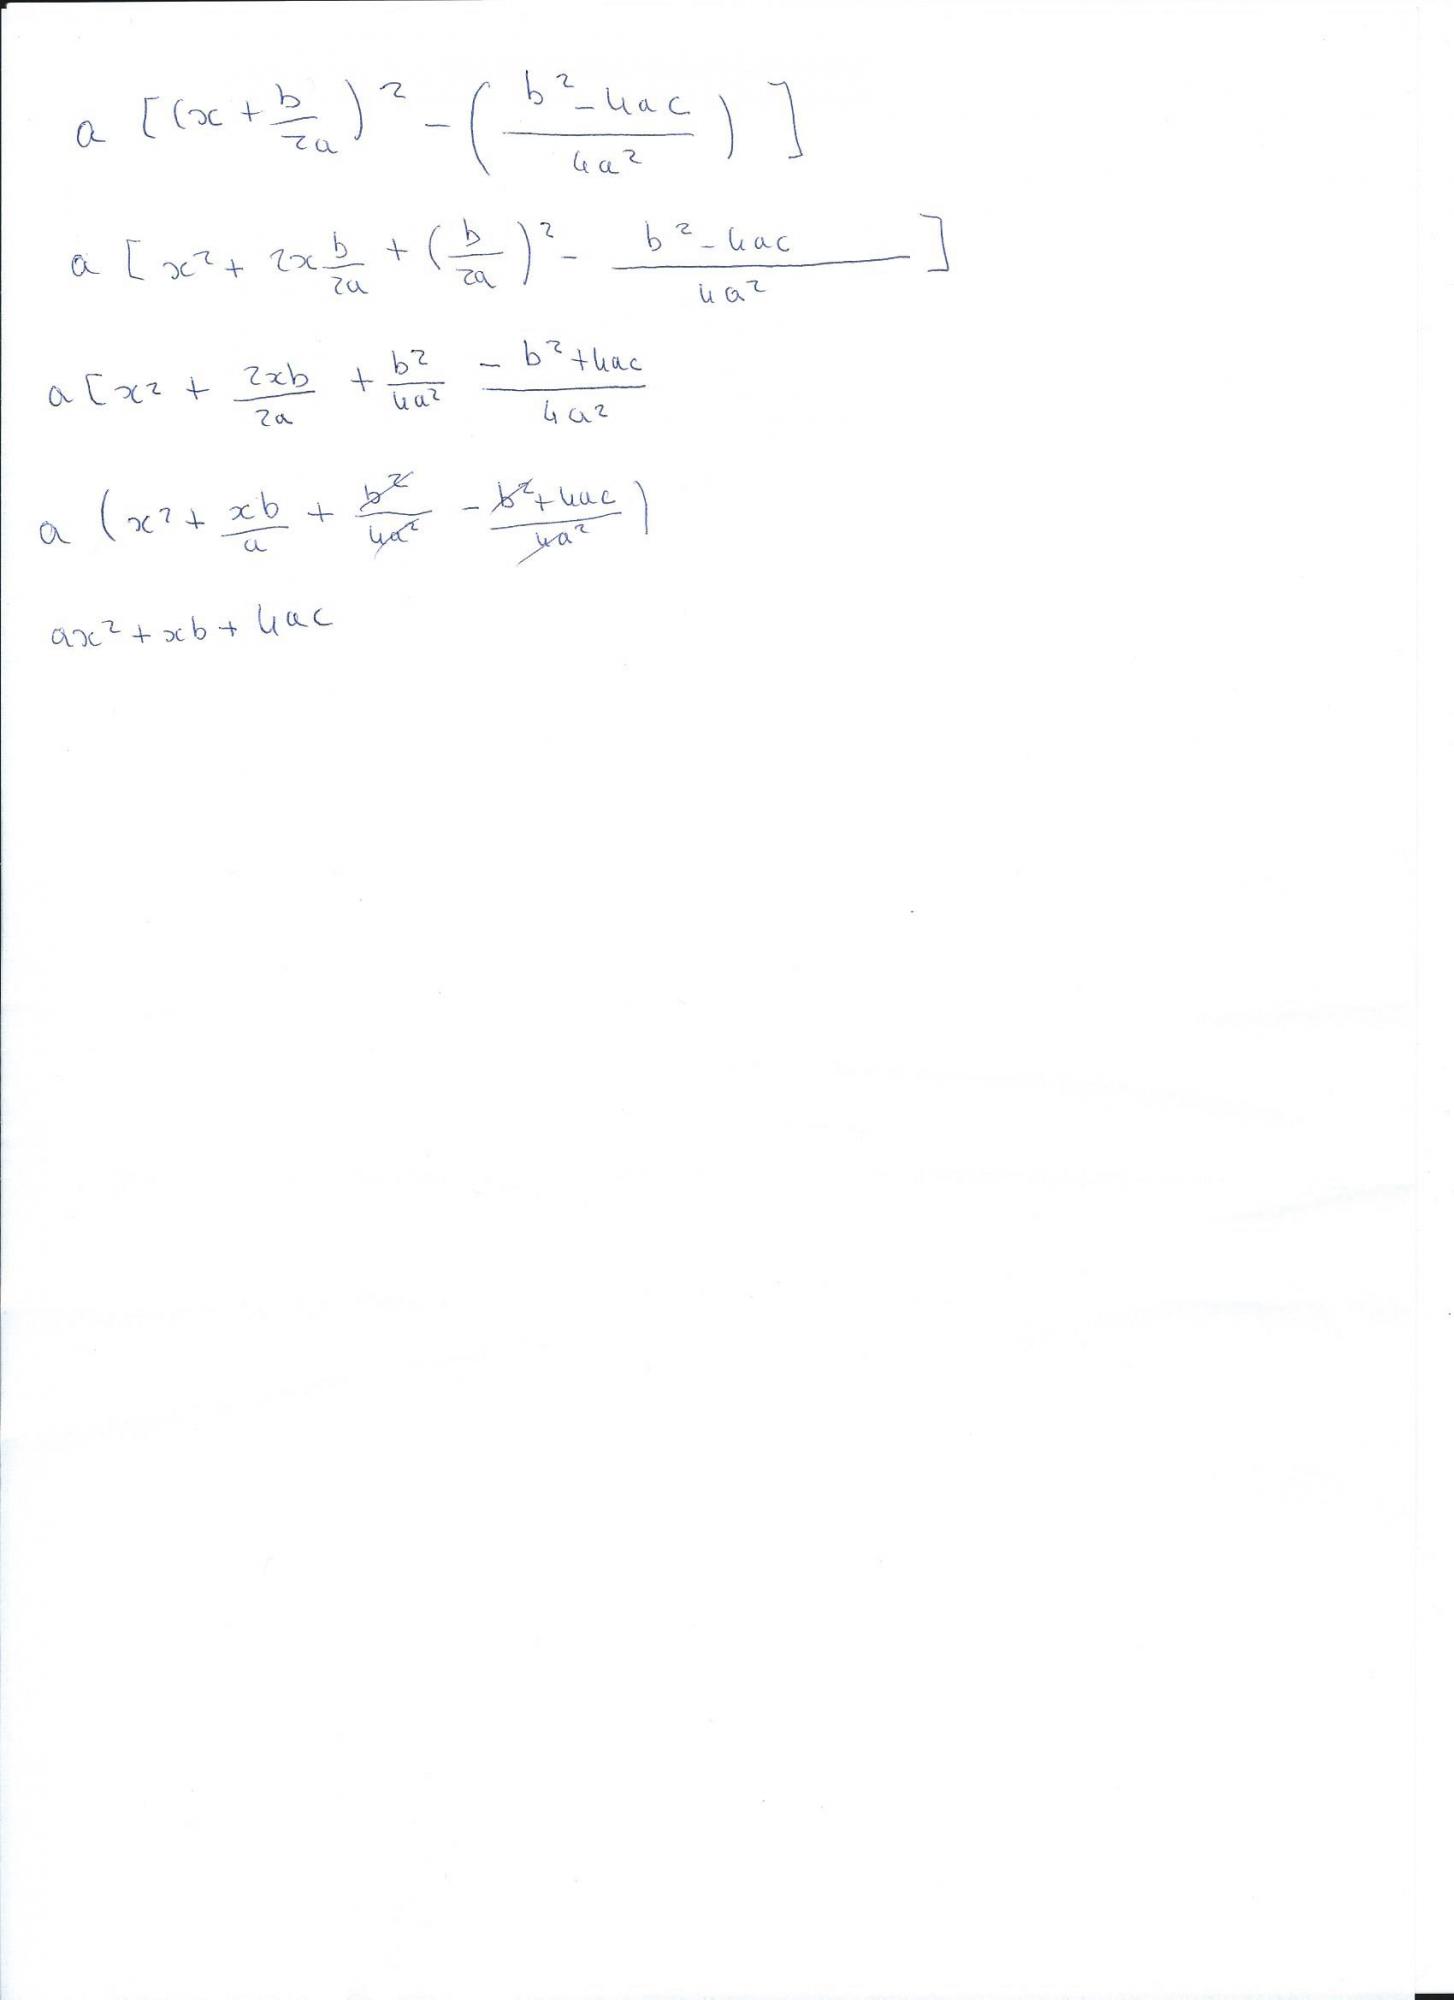 a [(x + b/2a)² - (b² - 4ac / 4a²)]
a [x² + 2x b/2a + (b/2a)² - b² - 4ac / 4a²]
a [x² + 2xb/2a + b²/4a² - b² + 4ac / 4a²
a (x² + xb/a + b²/4a² - b² + 4ac / 4a²)
ax² + xb + 4ac